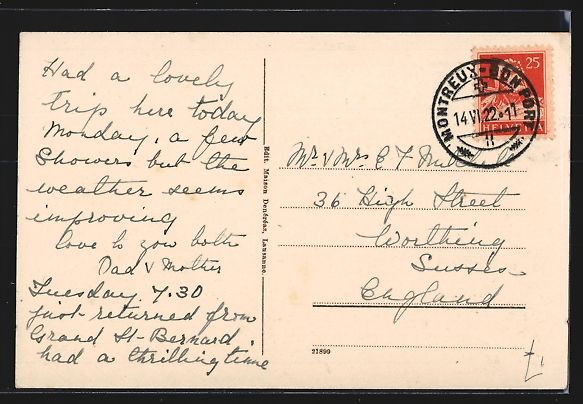 Had a lovely
trip here today
Monday, a few
showers but the
weather seems
improving
love to you both
Dad & Mother
Tuesday 7.30
just returned from
Grand St-Bernard
had a thrilling time
Edit. Maison Denéréaz, Lausanne.
25
HELVETIA
MONTREUX-BON PORT
14 VI 22
Mr & Mrs E F
36 High Street
Worthing
Sussex
England
21899